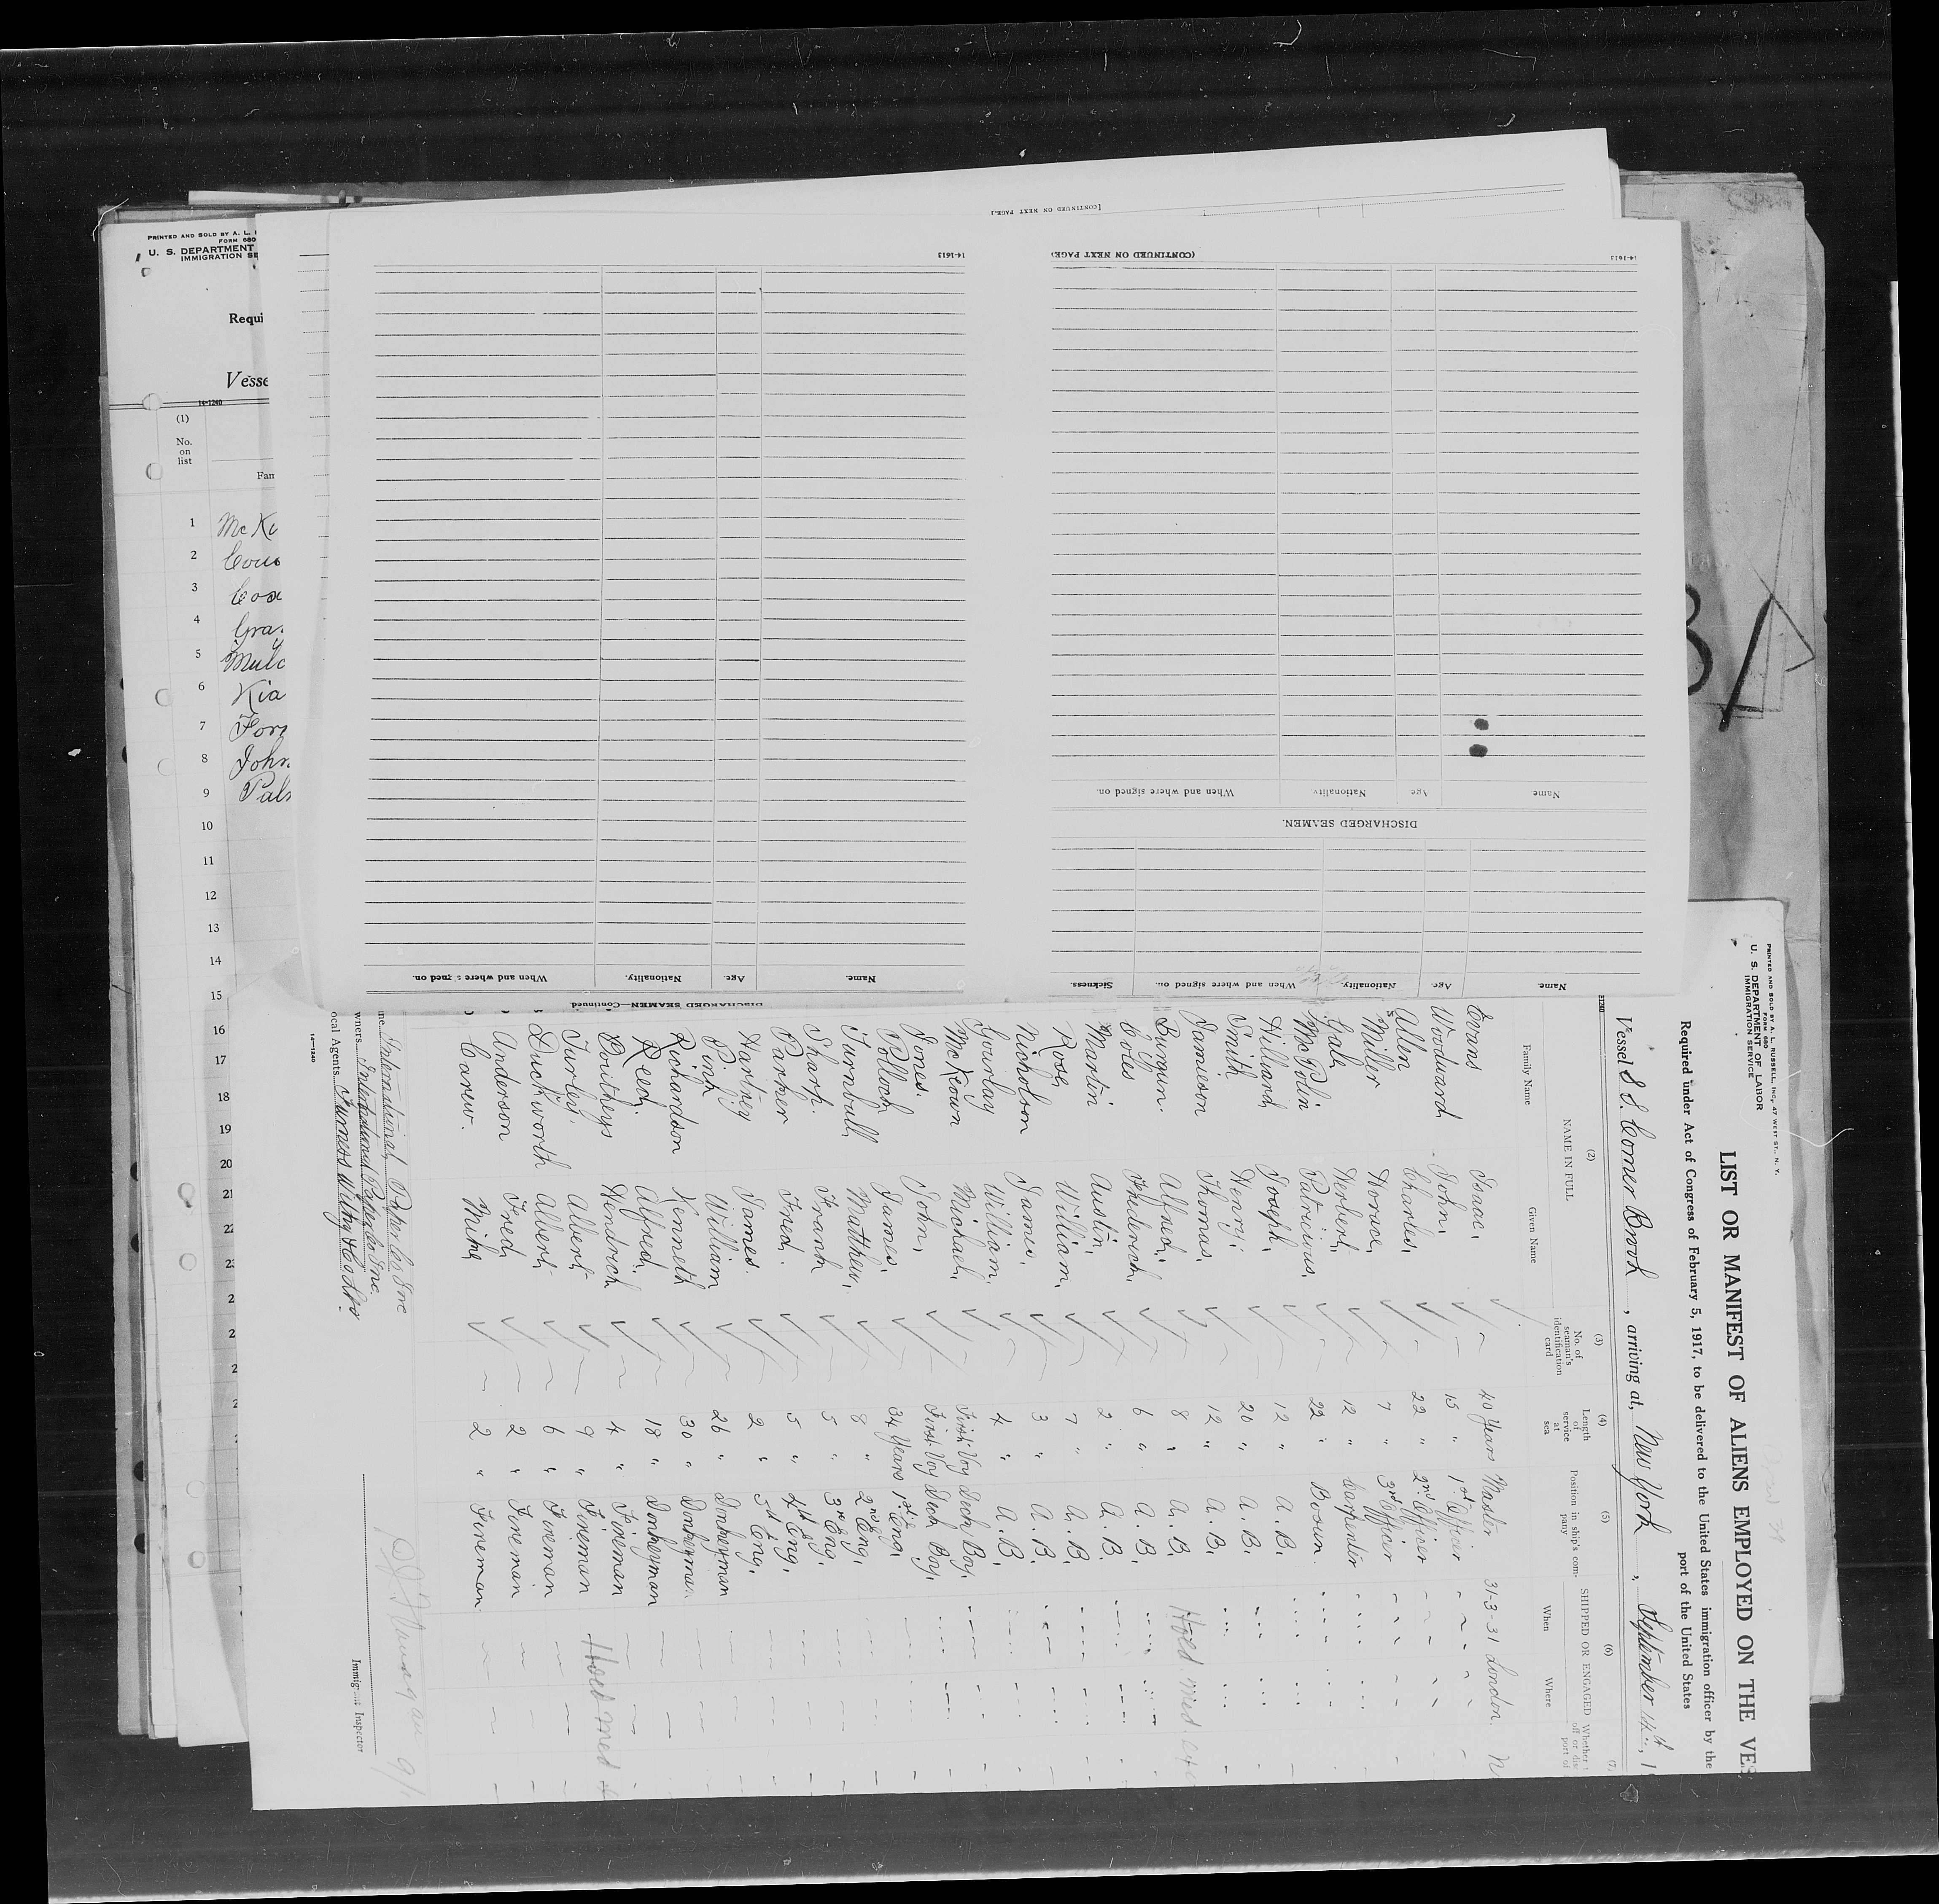 PRINTED AND SOLD BY A. L.
FORM 680
U. S. DEPARTMENT
IMMIGRATION SE
Requi
Vesse
14-1240
(1)
No.
on
list
Fam
1 McKi
2 Cous
3 Coa
4 Gra
5 Mulc
6 Kia
7 Fors
8 John
9 Pal
10
11
12
13
14
15
16
17
18
19
20
21
22
[CONTINUED ON NEXT PAGE.]
(CONTINUED ON NEXT PAGE)
14-1613
14-1613
Name When and where signed on. Nationality. Age
DISCHARGED SEAMEN.
Name. Age. Nationality. When and where signed on. Sickness.
DISCHARGED SEAMEN—Continued.
Name. Age. Nationality. When and where signed on.
PRINTED AND SOLD BY A. L. RUSSELL, INC., 47 WEST ST., N. Y.
FORM 680
U. S. DEPARTMENT OF LABOR
IMMIGRATION SERVICE
LIST OR MANIFEST OF ALIENS EMPLOYED ON THE VES
Required under Act of Congress of February 5, 1917, to be delivered to the United States immigration officer by the
port of the United States
Vessel S.S. Corner Brook, arriving at, New York, September 14th, 1
(2) (3) (4) (5) (6) (7)
NAME IN FULL
Family Name Given Name
No. of seaman's identification card
Length of service at sea
Position in ship's company
SHIPPED OR ENGAGED
When Where
Evans Isaac. 40 Years Master 31-3-31 London.
Woodward John. 15 " 1st Officer
Allen Charles. 22 " 2nd Officer
Miller Horace. 7 " 3rd Officer
Gale Herbert. 12 " Carpenter
McPolin Patricius. 22 " Bosun.
Hilliard Joseph. 12 " A.B.
Smith Henry. 20 " A.B.
Jamieson Thomas. 12 " A.B.
Burman. Alfred. 8 " A.B. Hold. med.
Coles Frederick. 6 " A.B.
Martin Austin. 2 " A.B.
Rose William. 7 " A.B.
Nicholson James. 3 " A.B.
Gourlay William. 4 " A.B.
McKeown Michael. First Voy Deck Boy.
Jones. John. First Voy Deck Boy.
Pollock James. 34 Years 1st Eng.
Turnbull Matthew. 8 " 2nd Eng.
Sharp. Frank 5 " 3rd Eng.
Parker Fred. 5 " 4th Eng.
Hartney James. 2 " 5th Eng.
Pink William 26 " Donkeyman
Richardson Kenneth 30 " Donkeyman
Reed. Alfred. 18 " Donkeyman
Pontheys Hendrick 4 " Fireman
Turley. Albert 9 " Fireman Hold med
Duckworth Albert. 6 " Fireman
Anderson Fred 2 " Fireman
Carew. Mike 2 " Fireman.
International Paper Co Inc
wners International Paper Co Inc.
ocal Agents Furness Withy & Co Ltd.
14-1240
Immigrant Inspector